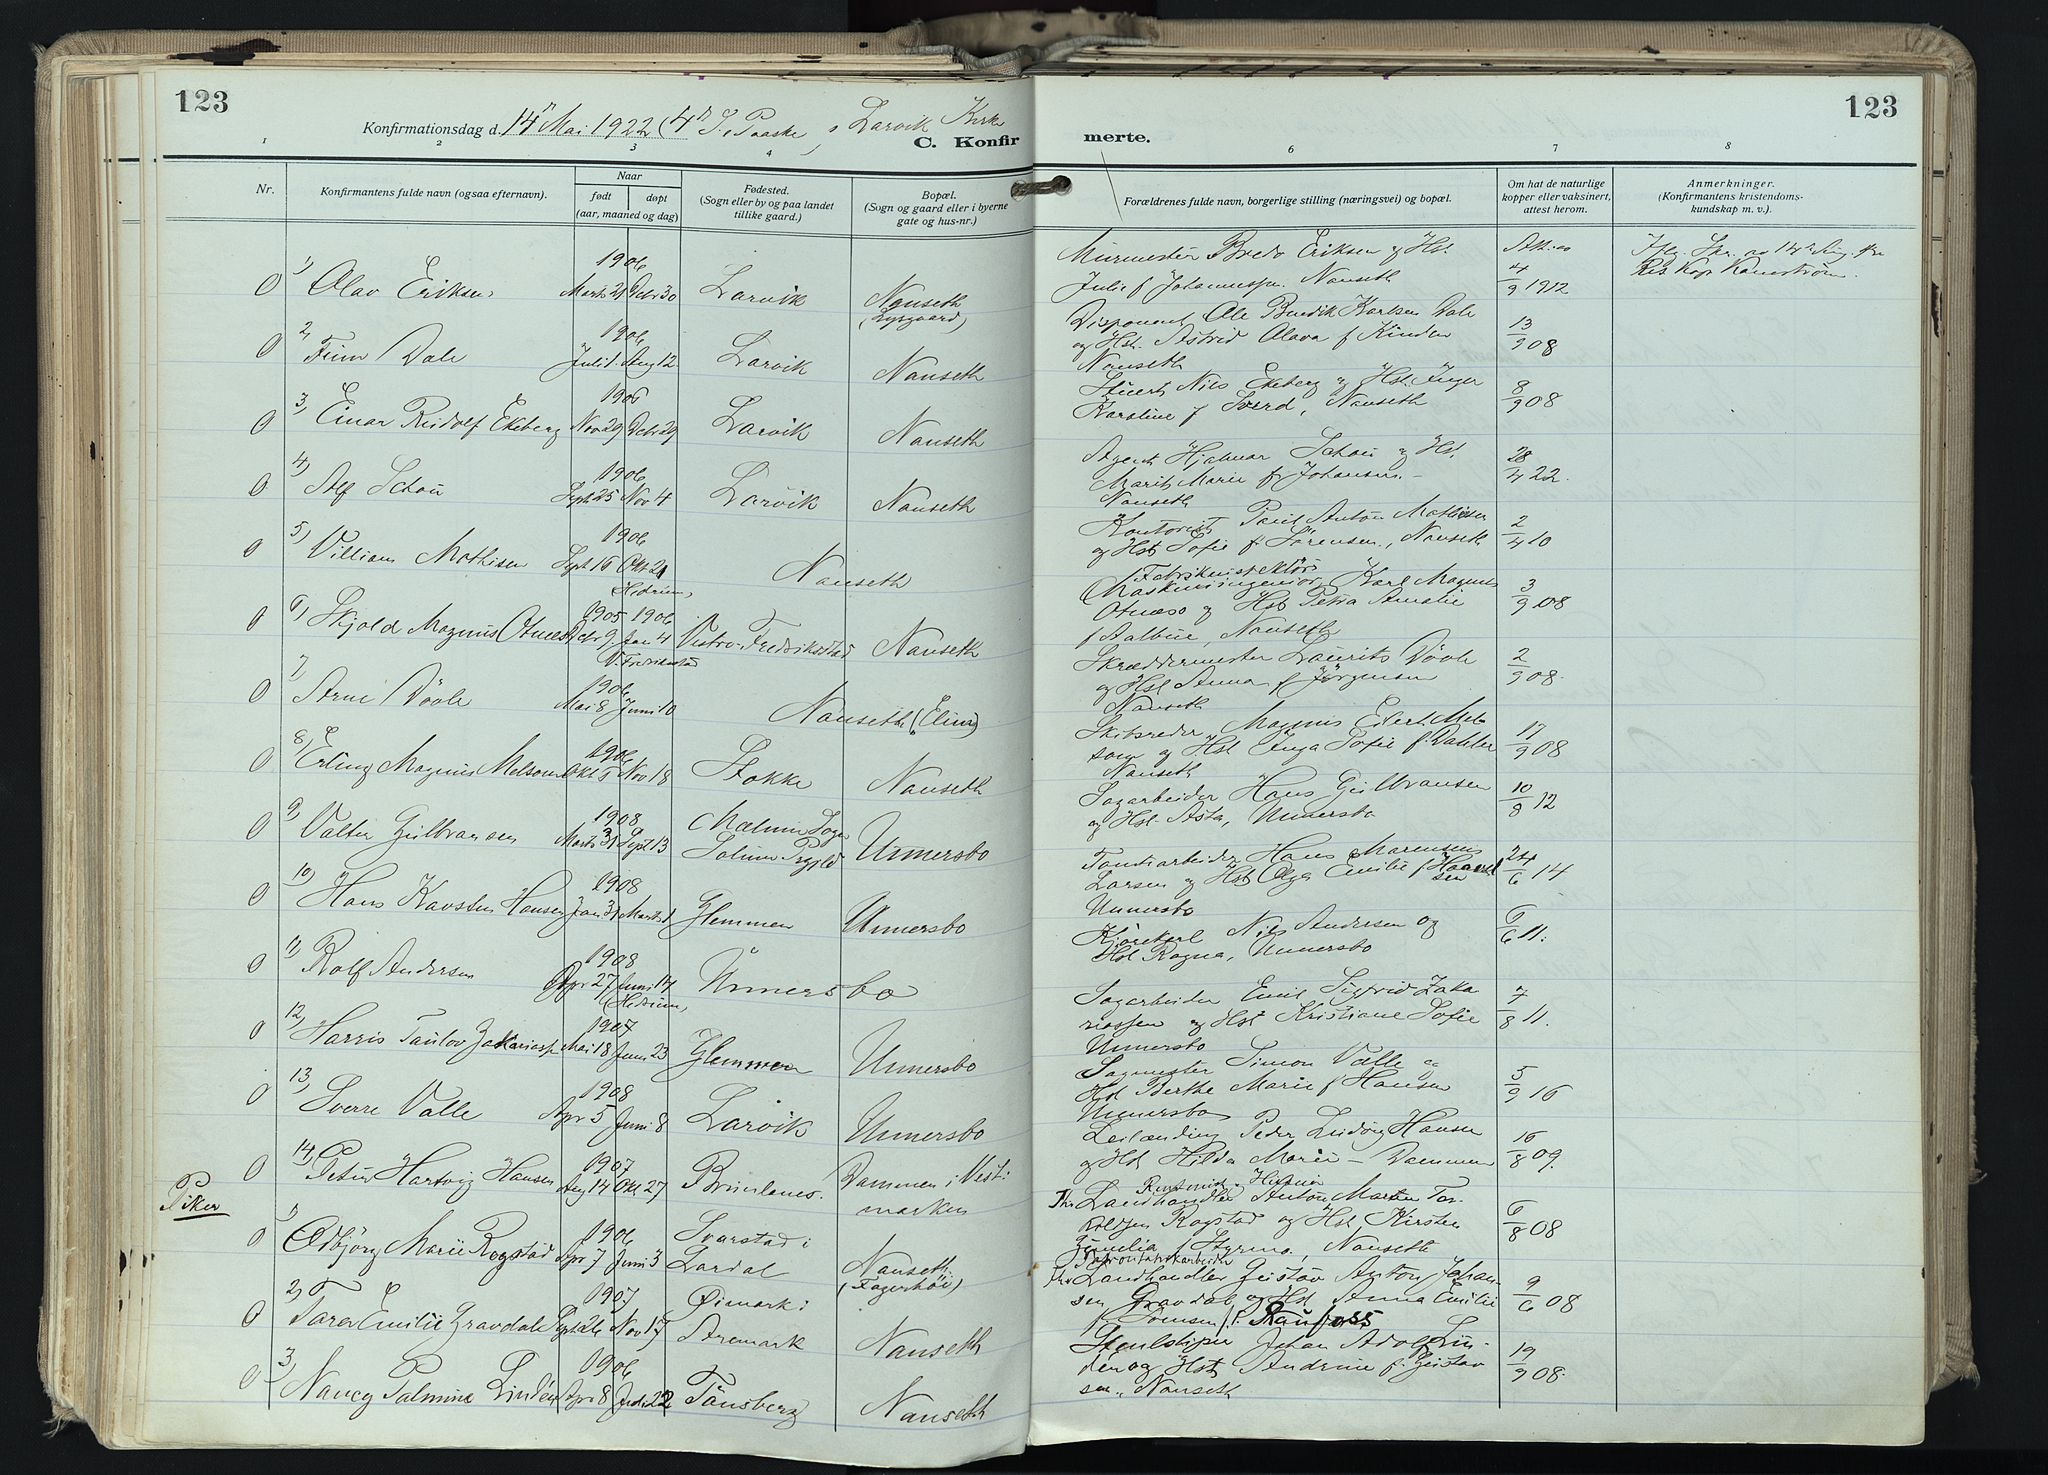 123
Konfirmationsdag d. 14n Mai 1922 (4d S. i Paaske, i Larvik Kirke
C. Konfir
1 2 3 4
Nr.
Konfirmantens fulde navn (ogsaa efternavn).
Naar
født døpt
(aar, maaned og dag)
Fødested.
(Sogn eller by og paa landet
tillike gaard.)
Bopæl.
(Sogn og gaard eller i byerne
gate og hus-nr.)
1906
0 1) Olav Eriksen Marts 21 Dcbr 30 Larvik Nanseth
1906
0 2) Finn Dale Juli 1. Aug 12. Larvik Nanseth
0 3) Einar Rudolf Ekeberg Nov 29 Dcbr 29 Larvik Nanseth
1906
0 4) Alf Schou Sept 25 Nov 4 Larvik Nanseth
1906
0 5) Villiam Mathisen Sept 16 Okt 21 Nanseth
1905 1906
0 6) Skjold Magnus Otnæs Dcbr 9. Jan 4 Vestre Fredrikstad Nanseth
V. Fredrikstad
1906
0 7) Arne Døvle Mai 8 Juni 10 Nanseth (
1906
0 8) Erling Magnus Melsom Okt Nov 18 Stokke Nanseth
1908
0 9) Valter Gulbransen Marts 31 Sept 13 Mælum Sogn
Solum Unnersbo
1908
0 10) Hans Karsten Hansen Jan 31 Marts 1 Glemmen Unnersbo
1908
0 11) Rolf Andersen Apr 27 Juni 14 Unnersbo
(Hedrum)
1907
0 12) Harris Taulov Zakariass. Mai 18 Juni 23 Glemmen Unnersbo
1908
0 13) Sverre Valle Apr 5 Juni 8 Larvik Unnersbo
1907
0 14) Peter Hartvig Hansen Aug 14 Okt 27 Brunlanes. Dammen i Vest
marken
Piker
1906
0 1) Odbjörg Marie Rogstad Apr 7 Juni 3 Svarstad i
Lardal Nanseth
1907
0 2) Emilie Gravdal Sept 26 Nov 17 Øimark i
Aremark Nanseth
1906
0 3) Nancy Palmine Lindén Apr 8 Juli 22 Tönsberg Nanseth
123
merte.
6 7 8
Forældrenes fulde navn, borgerlige stilling (næringsvei) og bopæl.
Om hat de naturlige
kopper eller vaksinert,
attest herom.
Anmerkninger.
(Konfirmantens kristendoms-
kundskap m. v.).
Murmester Bredo Eriksen og Hst.
Julie f Johannessen. Nanseth 4/9 1912
Disponent Ole Bendik Karlsen Dale
og Hst. Astrid Olava f Kinden 13/9 08
Nanseth
Nils Ekeberg og Hst. Inger
Karoline f Sverd, Nanseth 8/9 08
Agent Hjalmar Schou og Hst.
Marit Marie f Johansen. 28/4 22.
Nanseth
Kontorist Paul Anton Mathisen
og Hst Sofie f. Sørensen, Nanseth 2/4 10
Fabrikinspektör
Maskiningeniør, Karl Magnus
Otnæs og Hst Petra Amalie 3/9 08
f Aalbue, Nanseth
Skræddermester Laurits Døvle
og Hst Anna f Jörgensen 2/9 08.
Nanseth
Skibsreder Magnus Evert Mel
som og Hst Inga Sofie f. Dahler 17/9 08
Nanseth
Sagarbeider Hans Gulbransen
og Hst. Asta, Unnersbo 10/8 12
Tomtearbeider Hans Marensen
Larsen og Hst Olga Emilie f 24/6 14
Unnersbo
Kjørekarl Nils Andersen og
Hst Ragna, Unnersbo 6/6 11.
Sagarbeider Emil Sigfrid Zaka
riassen og Hst Kristiane Sofie 7/8 11.
Unnersbo
Sagmester Simon Valle og
Hst Berthe Marie f Hansen 5/9 16
Unnersbo
Leilænding Peder Ludvig Hansen
og Hst Hilda Marie - Dammen 16/8 09.
Landhandler Anton Martin Tor-
kildsen Rogstad og Hst, Kirsten 6/8 08
f Styrmo, Nanseth
Landhandler Gustav Anton Johan-
sen Gravdal og Hst Anna Emilie 9/6 08
f Raufoss
Stenhugger Johan Adolf Lin-
dén og Hst Andrine f. Gustav 19/9 08.
sen, Nanseth